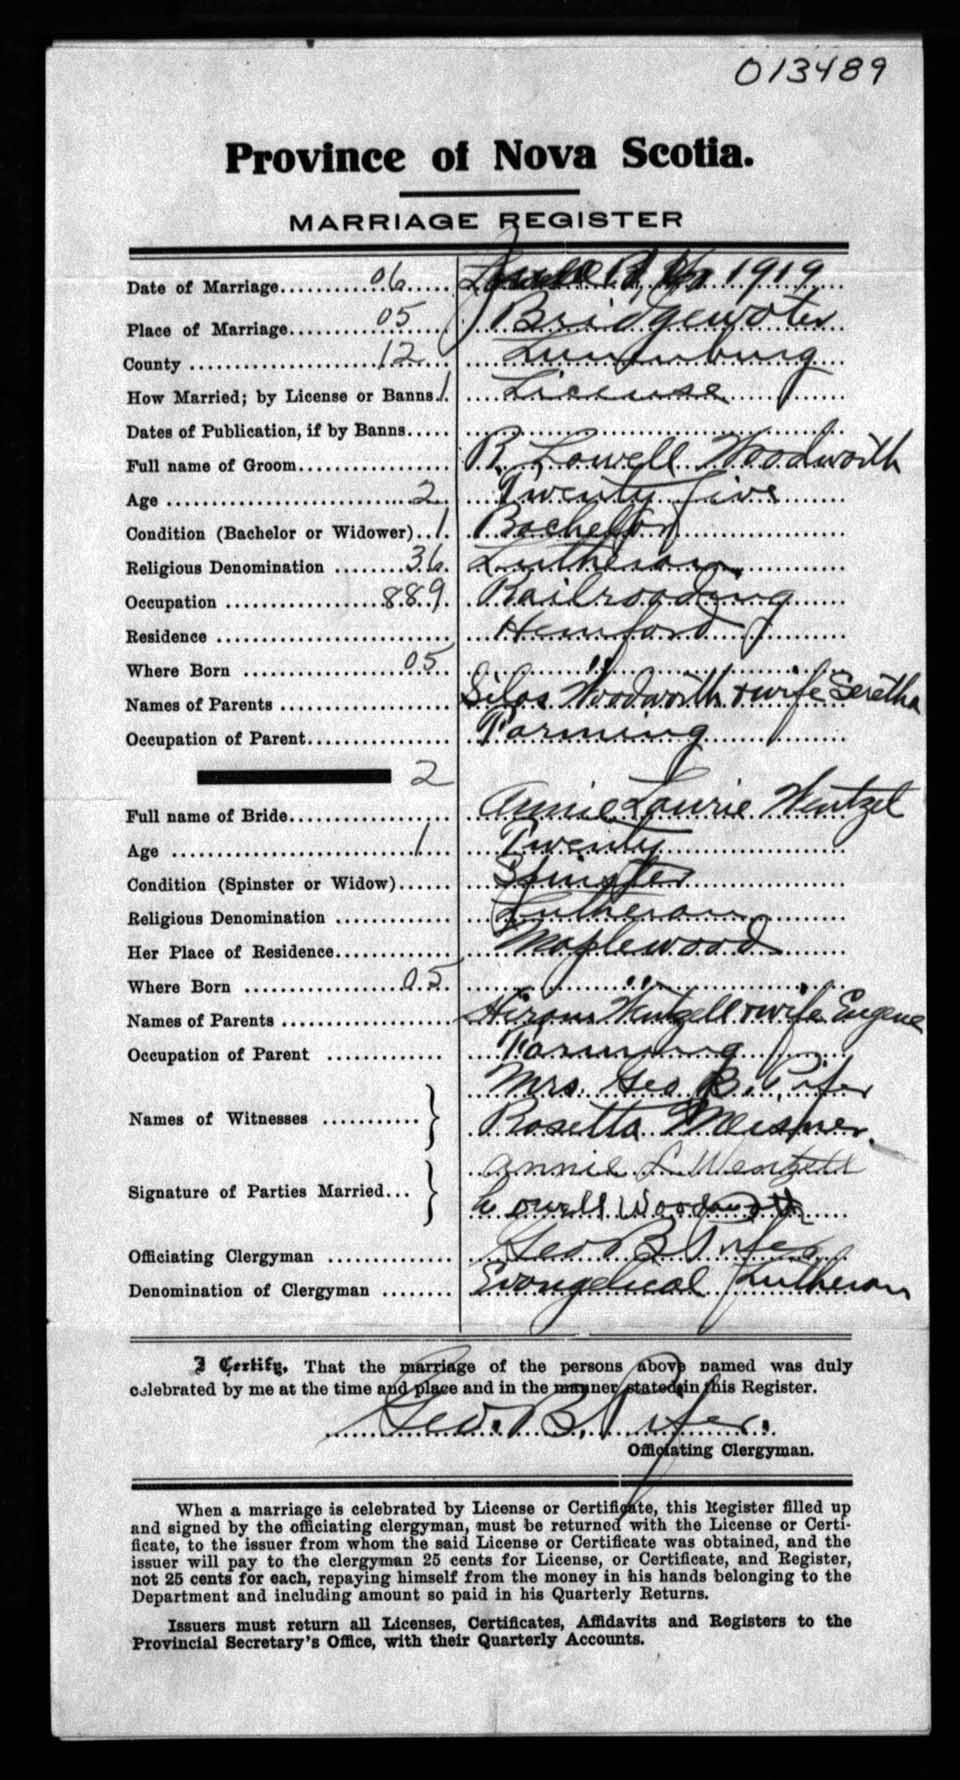 013489
Province of Nova Scotia.
MARRIAGE REGISTER
Date of Marriage 06 June 1919
Place of Marriage 05 Bridgewater
County 12 Lunenburg
How Married; by License or Banns 1 License
Dates of Publication, if by Banns
Full name of Groom R. Lowell Woodworth
Age 2 Twenty five
Condition (Bachelor or Widower) 1 Bachelor
Religious Denomination 36 Lutheran
Occupation 889 Railroading
Residence Hemford
Where Born 05 "
Names of Parents Silas Woodworth & wife Seretha
Occupation of Parent Farming
2
Full name of Bride Annie Laurie Wentzel
Age 1 Twenty
Condition (Spinster or Widow) Spinster
Religious Denomination Lutheran
Her Place of Residence Maplewood
Where Born 05 "
Names of Parents Hiram Wentzell & wife Eugene
Occupation of Parent Farming
Names of Witnesses Mrs. Geo B. Pifer
Rosetta Meisner.
Signature of Parties Married Annie L. Wentzell
Lowell Woodworth
Officiating Clergyman Geo B. Pifer
Denomination of Clergyman Evangelical Lutheran
I Certify, That the marriage of the persons above named was duly
celebrated by me at the time and place and in the manner stated in this Register.
Geo. B. Pifer.
Officiating Clergyman.
When a marriage is celebrated by License or Certificate, this Register filled up
and signed by the officiating clergyman, must be returned with the License or Certi-
ficate, to the issuer from whom the said License or Certificate was obtained, and the
issuer will pay to the clergyman 25 cents for License, or Certificate, and Register,
not 25 cents for each, repaying himself from the money in his hands belonging to the
Department and including amount so paid in his Quarterly Returns.
Issuers must return all Licenses, Certificates, Affidavits and Registers to the
Provincial Secretary's Office, with their Quarterly Accounts.